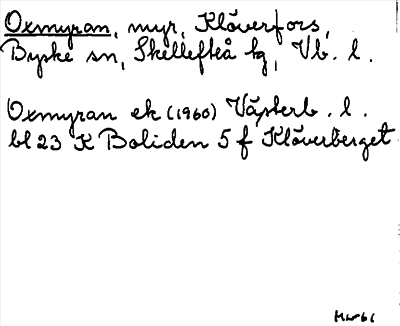 Oxmyran, myr, Klöverfors,
Byske sn, Skellefteå tg, Vb. l.
Oxmyran ek (1960) Västerb. l.
bl 23 K Boliden 5 f Klöverberget